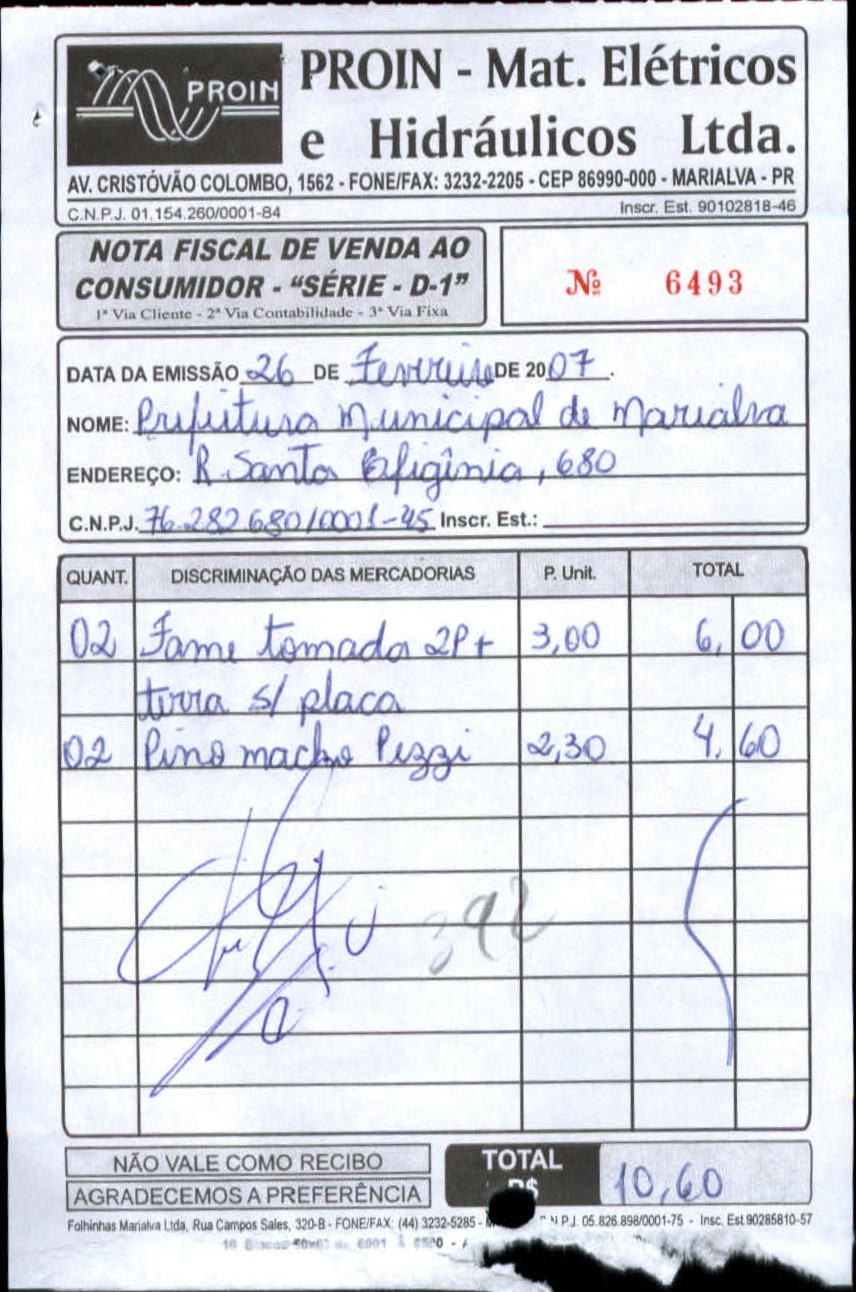 PROIN
PROIN - Mat. Elétricos
e Hidráulicos Ltda.
AV. CRISTÓVÃO COLOMBO, 1562 - FONE/FAX: 3232-2205 - CEP 86990-000 - MARIALVA - PR
C.N.P.J. 01.154.260/0001-84 Inscr. Est. 90102818-46
NOTA FISCAL DE VENDA AO
CONSUMIDOR - “SÉRIE - D-1”
1ª Via Cliente - 2ª Via Contabilidade - 3ª Via Fixa
Nº 6493
DATA DA EMISSÃO 26 DE Fevereiro DE 2007.
NOME: Prefeitura Municipal de Marialva
ENDEREÇO: R. Santa Efigênia, 680
C.N.P.J. 76.282.680/0001-45 Inscr. Est.:
QUANT. DISCRIMINAÇÃO DAS MERCADORIAS P. Unit. TOTAL
02 Fame tomada 2P+ 3,00 6,00
terra s/ placa
02 Pino macho Pezzi 2,30 4,60
392
NÃO VALE COMO RECIBO
AGRADECEMOS A PREFERÊNCIA
TOTAL
R$ 10,60
Folhinhas Marialva Ltda, Rua Campos Sales, 320-B - FONE/FAX: (44) 3232-5285 - N.P.J. 05.826.898/0001-75 - Insc. Est.90285810-57